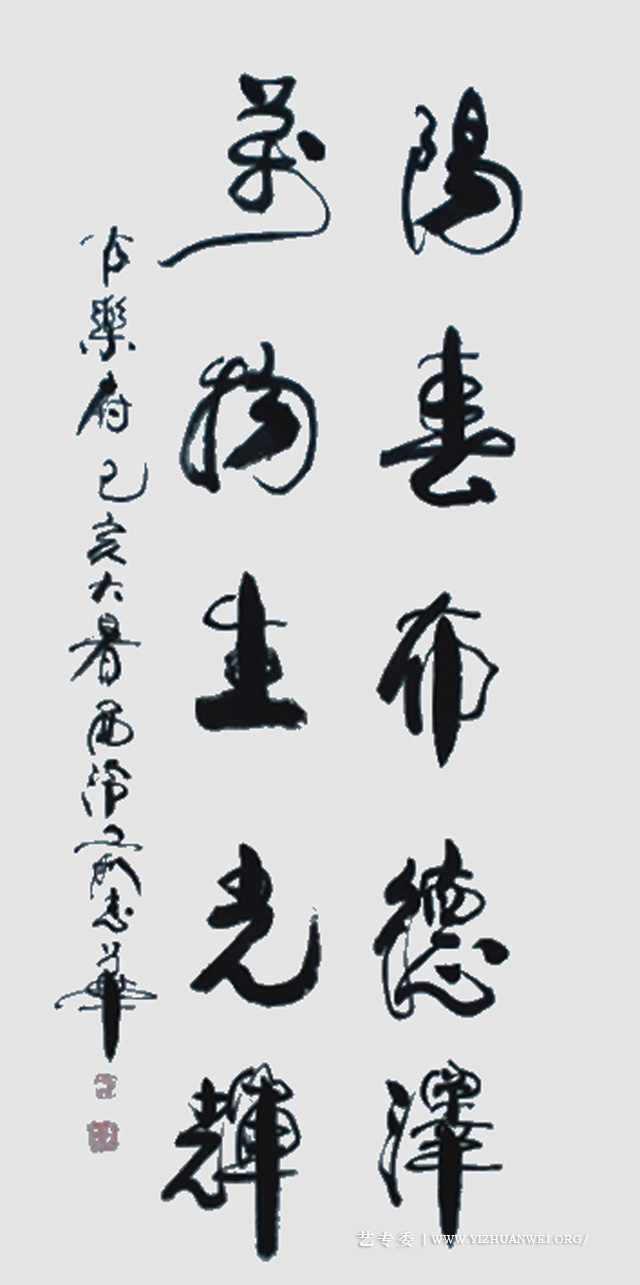 陽春布德澤
萬物生光輝
樂府己亥大暑西泠志華
艺专委 | WWW.YIZHUANWEI.ORG/